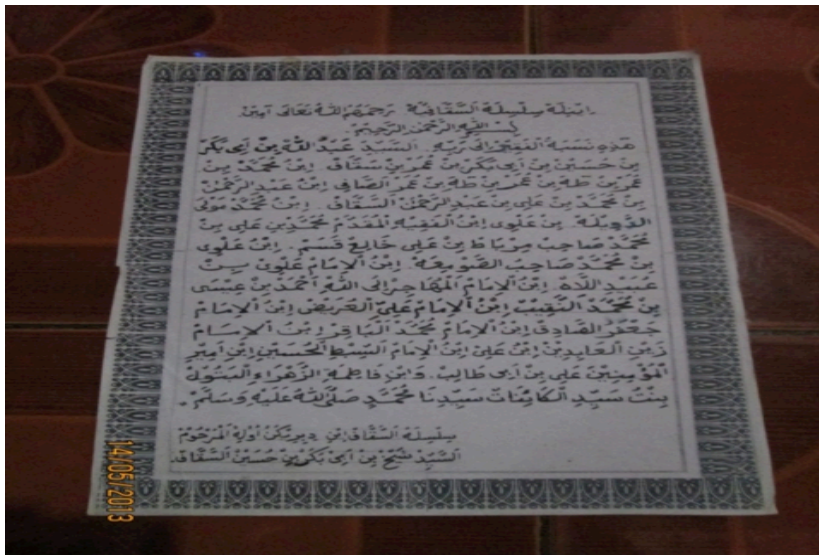 اينيله سلسلة السقافية رحمهم الله تعالى آمين.
بسم الله الرحمن الرحيم.
هذه نسبة الفقير إلى ربه. السيد عبد الله بن أبي بكر
بن حسين بن أبي بكر بن عمر بن سقاف. ابن محمد بن
عمر بن طه بن عمر بن طه بن عمر الصافي ابن عبد الرحمن
بن محمد بن علي بن عبد الرحمن السقاف. ابن محمد مولى
الدويلة. بن علوي ابن الفقيه المقدم محمد بن علي بن
محمد صاحب مرباط بن علي خالع قسم. ابن علوي
بن محمد صاحب الصومعة. ابن الإمام علوي بن
عبيد اللاه. ابن الإمام المهاجر إلى الله أحمد بن عيسى
بن محمد النقيب ابن الإمام علي العريضي ابن الإمام
جعفر الصادق ابن الإمام محمد الباقر ابن الإمام
زين العابدين ابن علي ابن الإمام السبط الحسين ابن أمير
المؤمنين علي بن أبي طالب. وابن فاطمة الزهراء البتول
بنت سيد الكائنات سيدنا محمد صلى الله عليه وسلم.
سلسلة السقاف اين اوله المرحوم
السيد شيخ بن أبي بكر بن حسين السقاف
14/05/2013